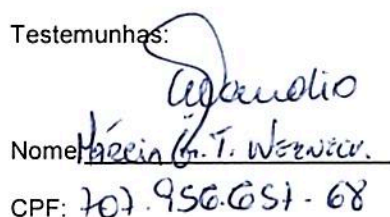 Testemunhas:
Nome: Márcia G. T. Werneck.
CPF: 707.956.657-68